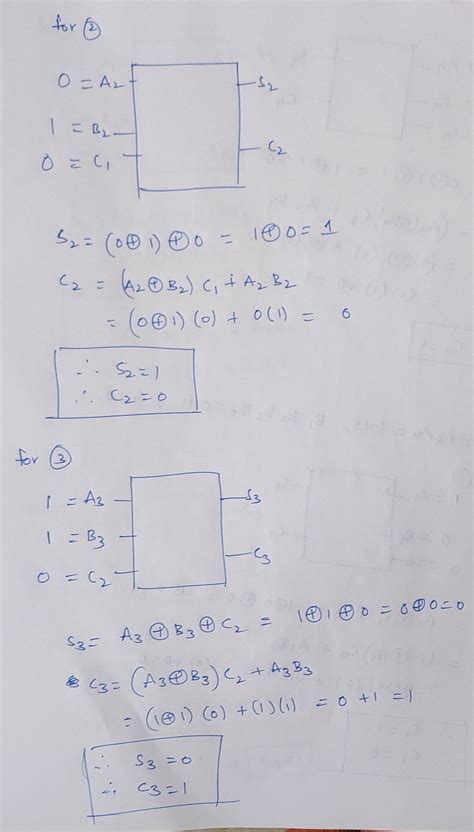 for ②
0 = A2 S2
1 = B2
0 = C1 C2
S2 = (0⊕1)⊕0 = 1⊕0 = 1
C2 = (A2⊕B2) C1 + A2 B2
= (0⊕1) (0) + 0(1) = 0
∴ S2=1
∴ C2=0
for ③
1 = A3 S3
1 = B3
0 = C2 C3
S3= A3 ⊕ B3 ⊕ C2 = 1⊕1⊕0 = 0⊕0=0
C3= (A3⊕B3) C2 + A3B3
= (1⊕1) (0) + (1)(1) = 0 +1 =1
∴ S3=0
∴ C3=1